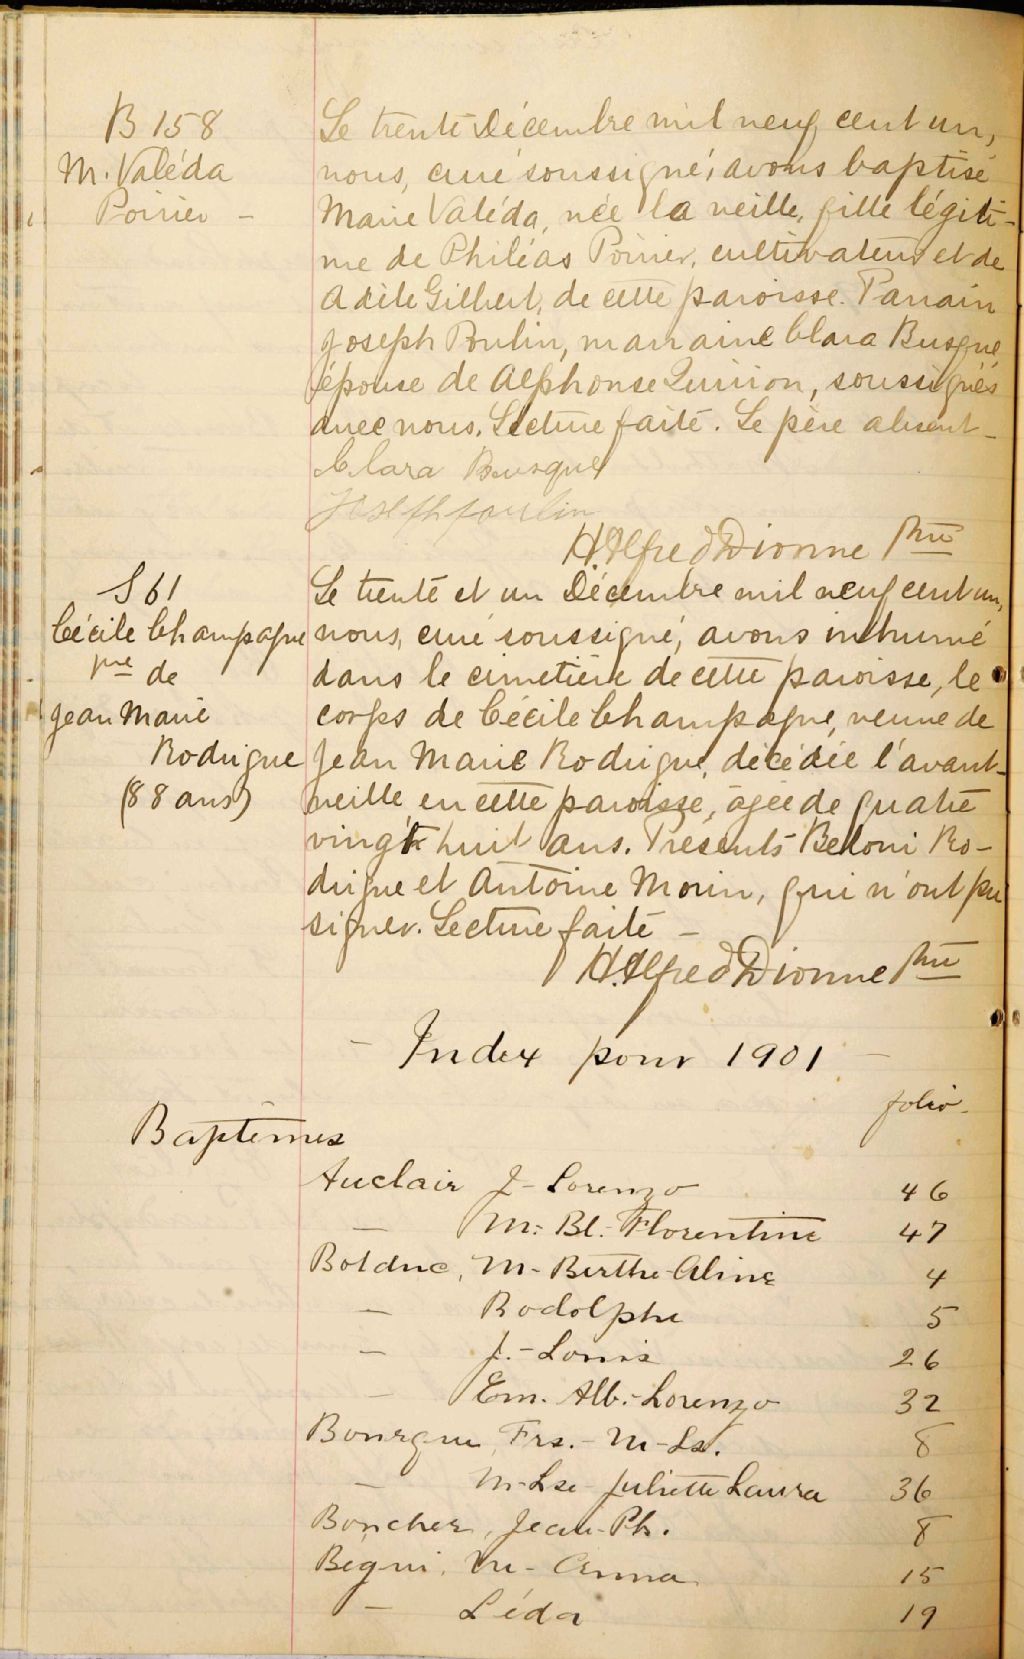 B 158
M. Valéda
Poirier -
Le trente Décembre mil neuf cent un,
nous, curé soussigné, avons baptisé
Marie Valéda, née la veille, fille légiti-
me de Philéas Poirier, cultivateur et de
Adèle Gilbert, de cette paroisse. Parrain
Joseph Poulin, marraine Clara Busque
épouse de Alphonse Quirion, soussignés
avec nous. Lecture faite. Le père absent -
Clara Busque
Joseph poulin
H. Alfred Dionne Ptre
S 61
Cécile Champagne
vve de
Jean Marie
Rodrigue
(88 ans)
Le trente et un Décembre mil neuf cent un,
nous, curé soussigné, avons inhumé
dans le cimetière de cette paroisse, le
corps de Cécile Champagne, veuve de
Jean Marie Rodrigue, décédée l'avant-
veille en cette paroisse, âgée de quatre
vingt huit ans. Présents Beloni Ro-
drigue et Antoine Morin, qui n'ont pu
signer. Lecture faite -
H. Alfred Dionne Ptre
- Index pour 1901 -
folio.
Baptêmes
Auclair J- Lorenzo 46
- M.- Bl.- Florentine 47
Bolduc, M- Berthe-Aline 4
- Rodolphe 5
- J.- Louis 26
- Em. Alb.- Lorenzo 32
Bourque, Frs.- M- Ls. 8
- M- Lse- Juliette Laura 36
Boucher, Jean-Ph. 8
Bégin, M- Anna 15
- Léda 19